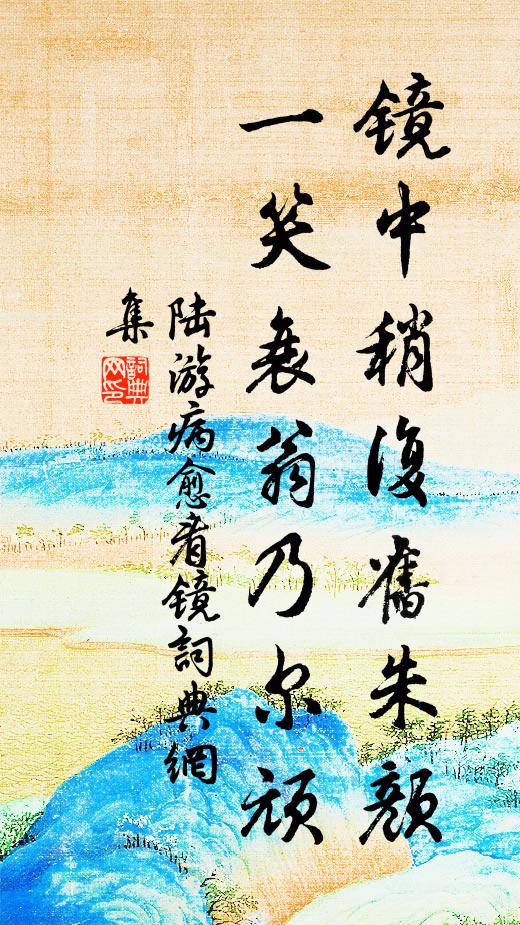 镜中稍复旧朱颜
一笑衰翁乃尔顽
陆游病愈看镜词典網
集
詞典網印